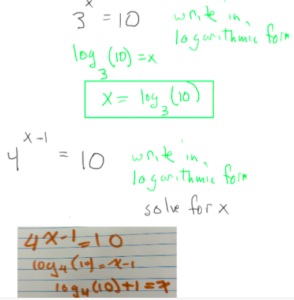 3^x = 10 write in
logarithmic form
log_3 (10) = x
x = log_3 (10)
4^(x-1) = 10 write in
logarithmic form
solve for x
4^(x-1) = 10
log_4 (10) = x-1
log_4 (10) + 1 = x